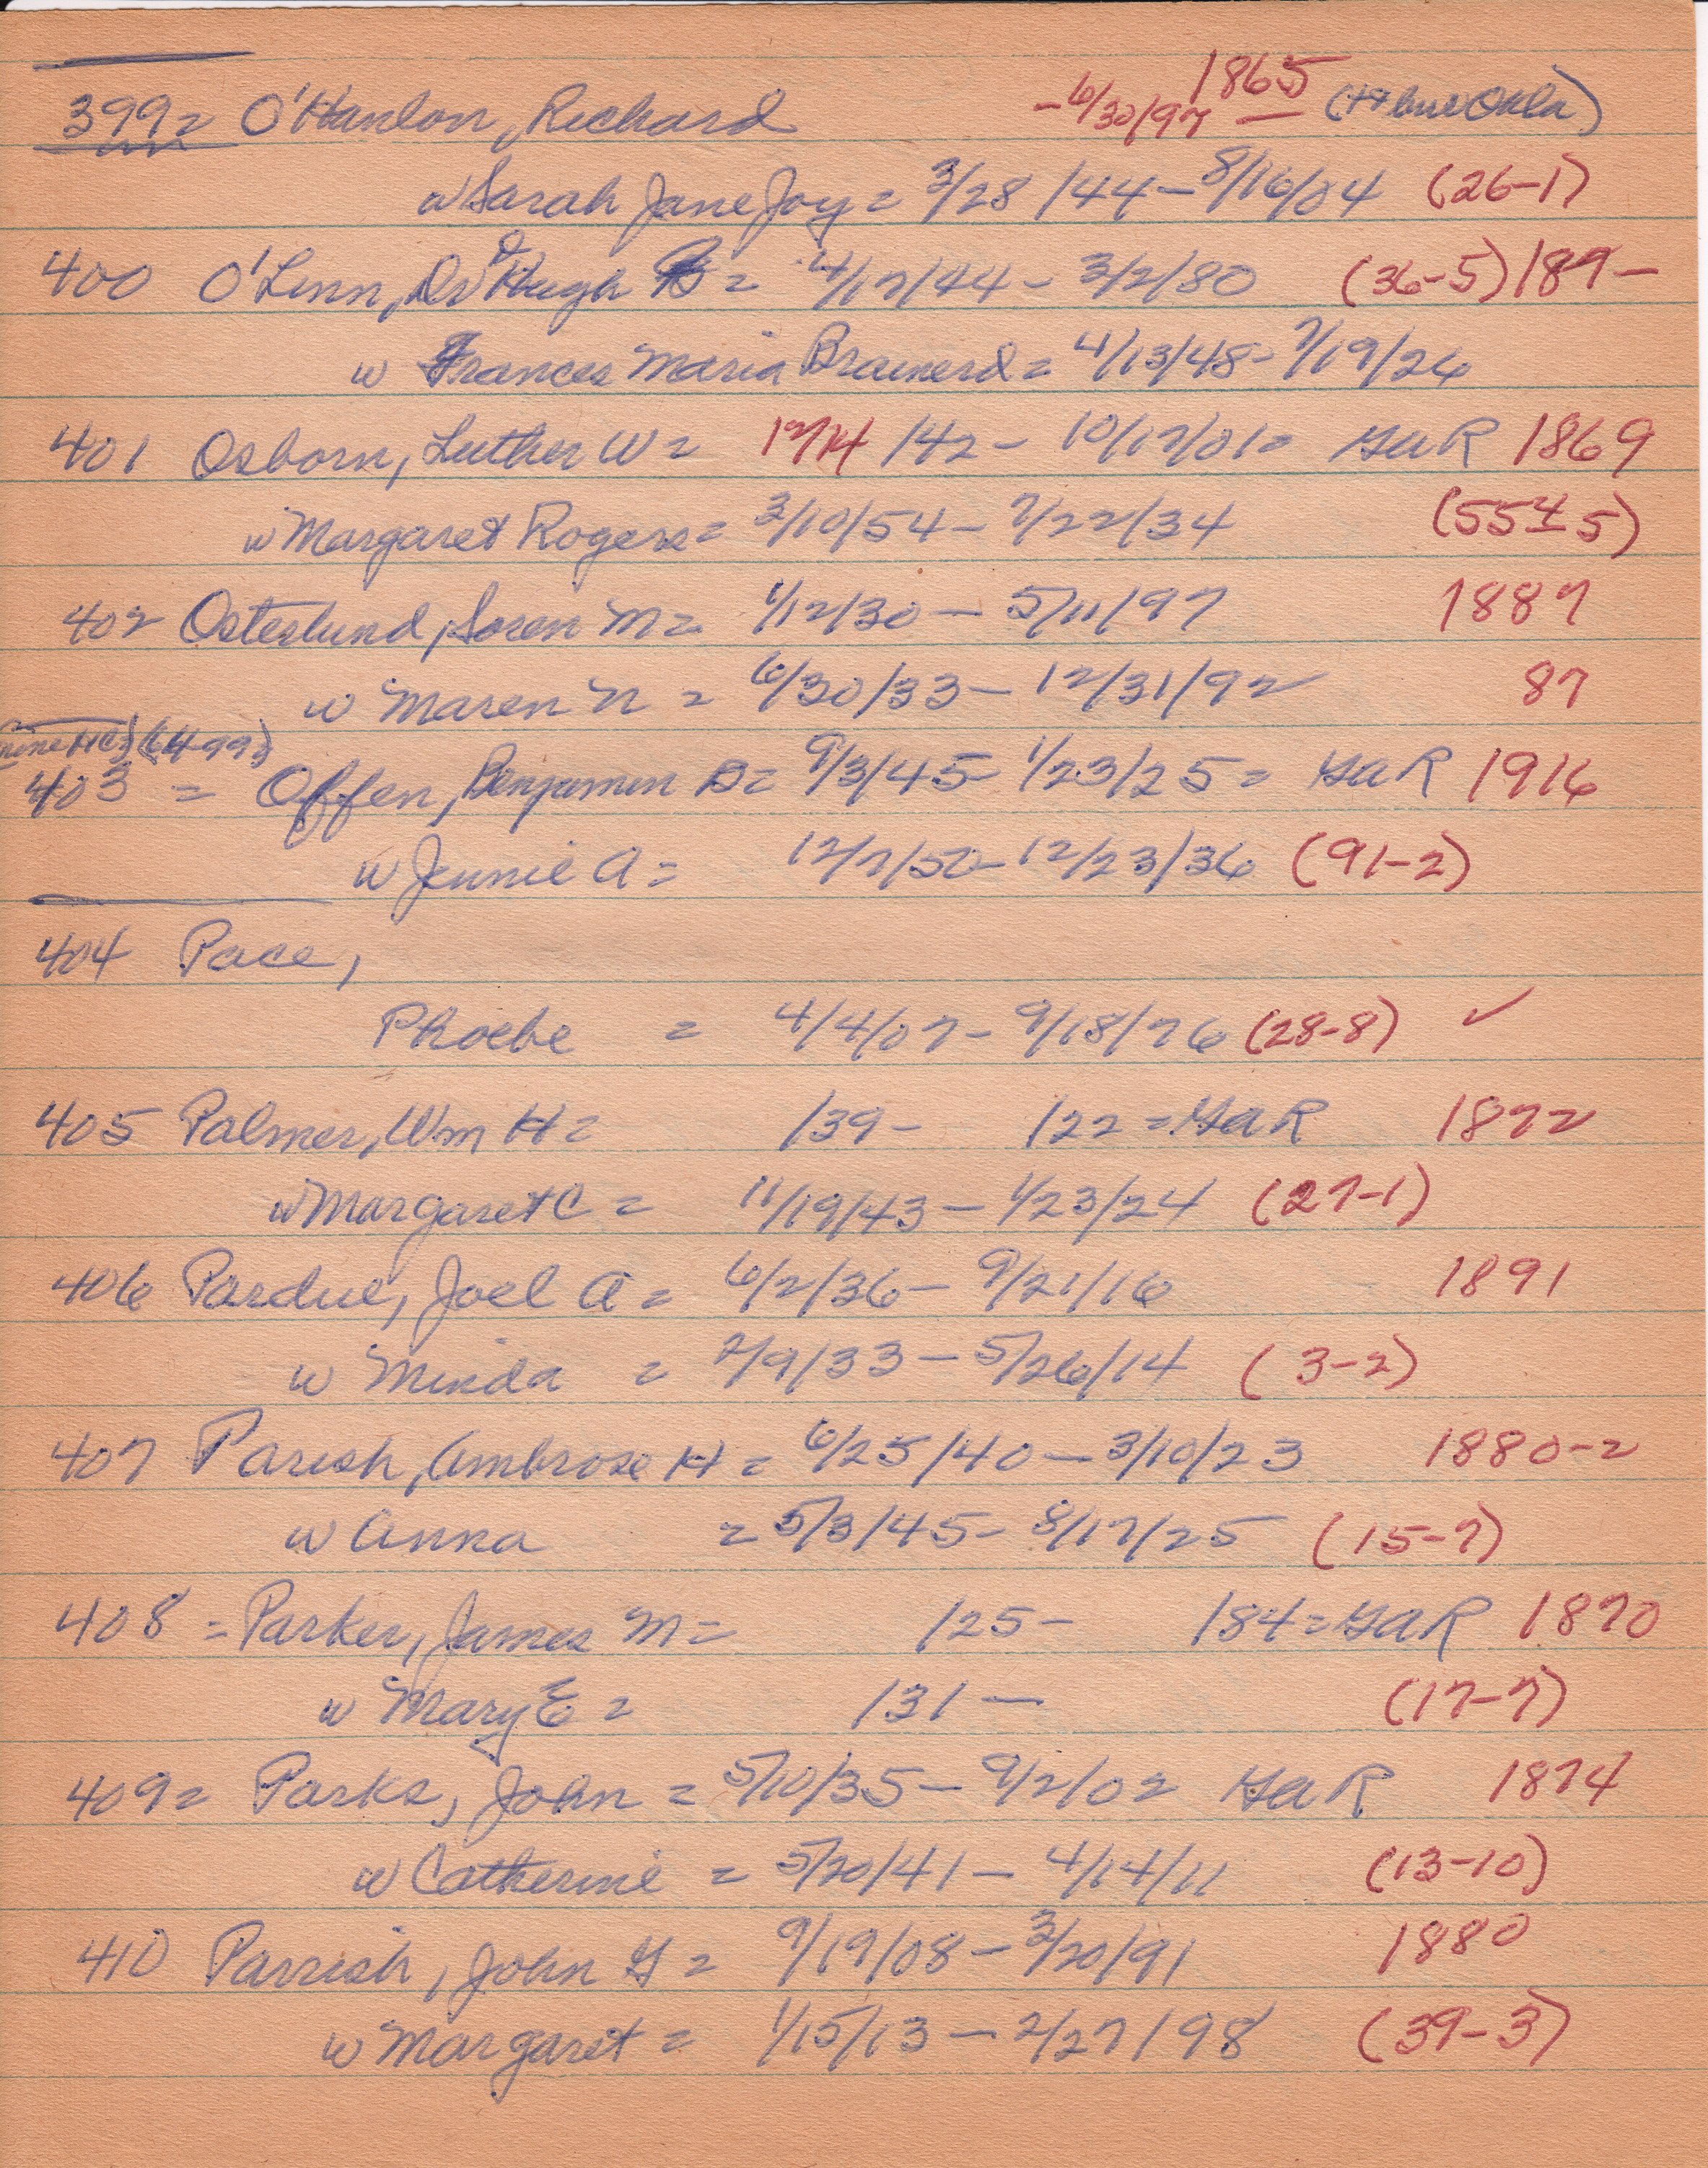 399= O'Hanlon, Richard -6/30/97 1865 (Okla)
w Sarah Jane Joy = 3/28/44-8/16/04 (26-1)
400 O'Linn, Dr Hugh J = 4/17/44-3/2/80 (36-5) 189-
w Frances Maria Brainerd = 4/13/48-7/19/26
401 Osborn, Luther W = 12/14/42-10/17/01= GaR 1869
w Margaret Rogers = 3/10/54-7/22/34 (55±5)
402 Osteslund, Soren M = 1/12/30-5/11/97 1887
w Maren N = 6/30/33-12/31/92 87
(6499)
403 = Offen, Benjamin B = 9/3/45-1/23/25= GaR 1916
w Jennie A = 12/7/50-12/23/36 (91-2)
404 Pace,
Phoebe = 4/4/07-9/18/76 (28-8) ✓
405 Palmer, Wm H = /39- /22=GaR 1872
w Margaret C = 11/19/43-1/23/24 (27-1)
406 Pardue, Joel A = 6/2/36-9/21/16 1891
w Minda = 2/9/33-5/26/14 (3-2)
407 Parish, Ambrose H = 6/25/40-3/10/23 1880-2
w Anna = 5/3/45-8/17/25 (15-7)
408 = Parker, James M = /25- /84=GaR 1870
w Mary E = /31- (17-7)
409= Parks, John = 5/10/35-9/2/02 GaR 1874
w Catherine = 5/20/41-4/14/11 (13-10)
410 Parrish, John G = 9/19/08-3/20/91 1880
w Margaret = 1/15/13-2/27/98 (39-3)